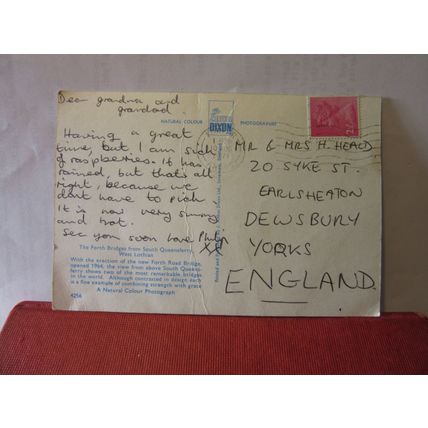 Dear grandma and
grandad.
Having a great
time, but I am sick
of raspberries. It has
rained, but thats all
right, because we
dont have to pick.
It is now very sunny
and hot.
See you soon love
XX
NATURAL COLOUR
DIXON
PHOTOGRAPHY
MR & MRS H. HEALD
20 SYKE ST.
EARLSHEATON
DEWSBURY
YORKS
ENGLAND.
The Forth Bridges from South Queensferry,
West Lothian
With the erection of the new Forth Road Bridge,
opened 1964, the view from above South Queens-
ferry shows two of the most remarkable bridges
in the world. Although contrasted in design each
is a fine example of combining strength with grace
A Natural Colour Photograph
4256